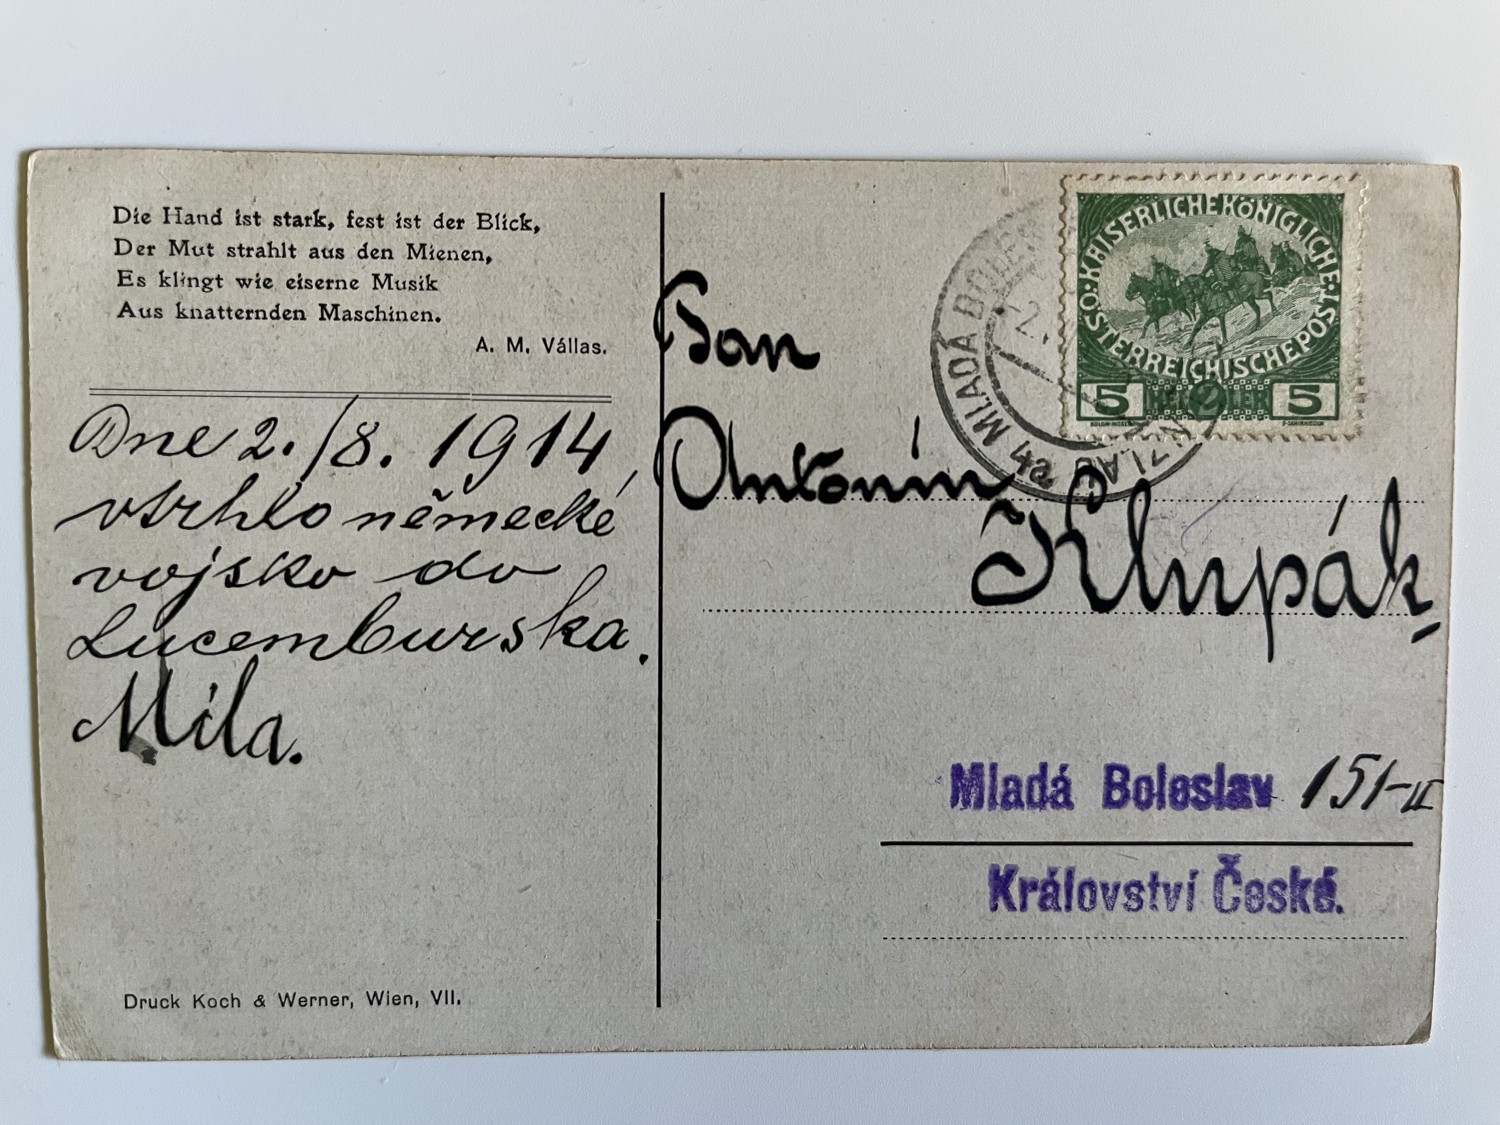 Die Hand ist stark, fest ist der Blick,
Der Mut strahlt aus den Mienen,
Es klingt wie eiserne Musik
Aus knatternden Maschinen.
A. M. Vállas.
Dne 2./8. 1914
vtrhlo německé
vojsko do
Lucemburska.
Mila.
Druck Koch & Werner, Wien, VII.
KAISERLICHEKÖNIGLICHE
ÖSTERREICHISCHEPOST
5 HELLER 5
MLADÁ BOLES
2.
NZLAU
Pan
Antonín
Klupák,
Mladá Boleslav 151-II
Království České.